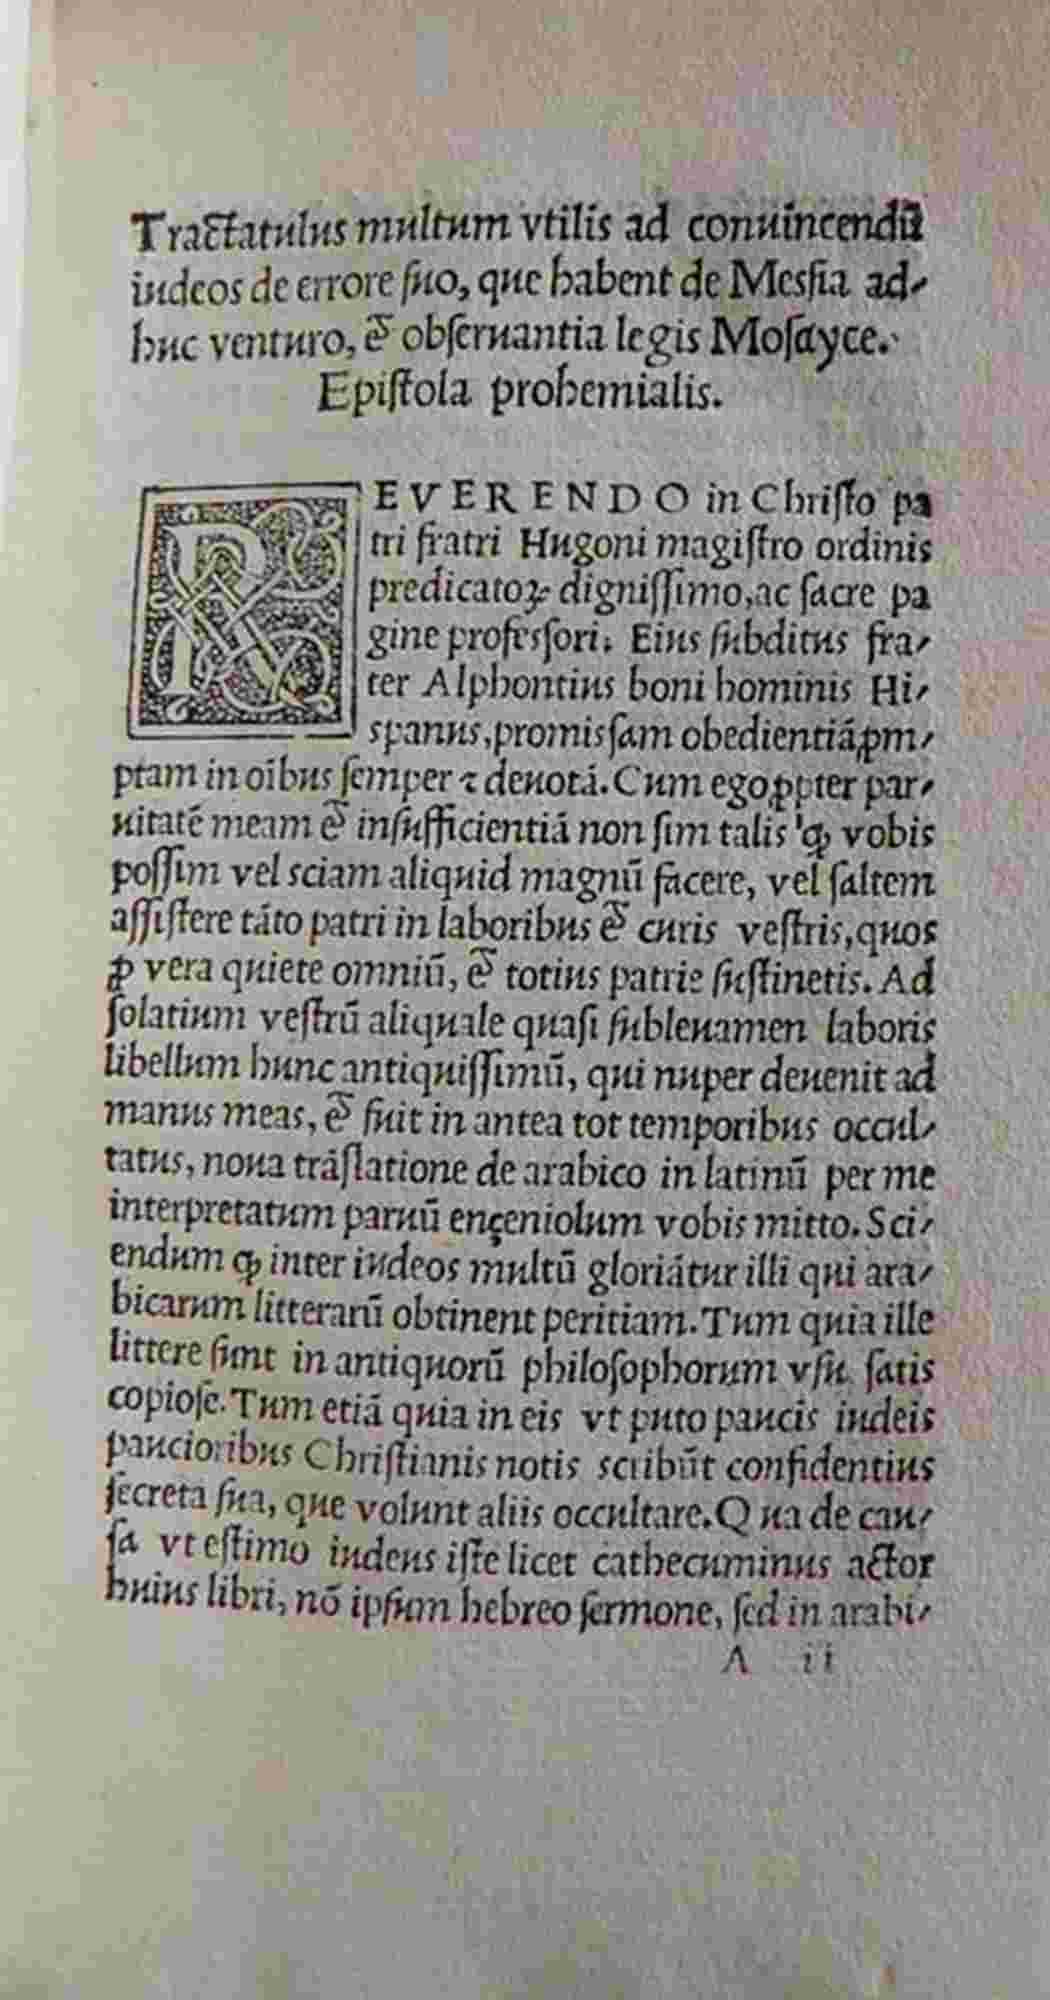 Tractatulus multum vtilis ad conuincendū
iudeos de errore ſuo, que habent de Mesſia ad-
huc venturo, & obſeruantia legis Moſayce.
Epiſtola prohemialis.
REVERENDO in Chriſto pa
tri fratri Hugoni magiſtro ordinis
predicatoꝝ digniſſimo, ac ſacre pa
gine profesſori. Eius ſubditus fra-
ter Alphontius boni hominis Hi-
spanus, promisſam obedientiā, ꝓm-
ptam in oībus ſemper ⁊ deuotā. Cum ego ꝓpter par-
uitatē meam & inſufficientiā non ſim talis ꝙ vobis
poſſim vel sciam aliquid magnū facere, vel ſaltem
aſſiſtere tāto patri in laboribus & curis veſtris, quos
ꝓ vera quiete omniū, & totius patrie ſuſtinetis. Ad
ſolatium veſtrū aliquale quaſi ſubleuamen laboris
libellum hunc antiquiſſimū, qui nuper deuenit ad
manus meas, & fuit in antea tot temporibus occul-
tatus, noua trāſlatione de arabico in latinū per me
interpretatum paruū ençeniolum vobis mitto. Sci-
endum ꝙ inter iudeos multū gloriātur illi qui ara-
bicarum litterarū obtinent peritiam. Tum quia ille
littere ſunt in antiquorū philoſophorum vſu ſatis
copioſe. Tum etiā quia in eis vt puto paucis iudeis
paucioribus Chriſtianis notis scribūt confidentius
ſecreta ſua, que volunt aliis occultare. Qua de cau-
ſa vt eſtimo iudeus iſte licet cathecuminus actor
huius libri, nō ipſum hebreo ſermone, ſed in arabi-
A ii